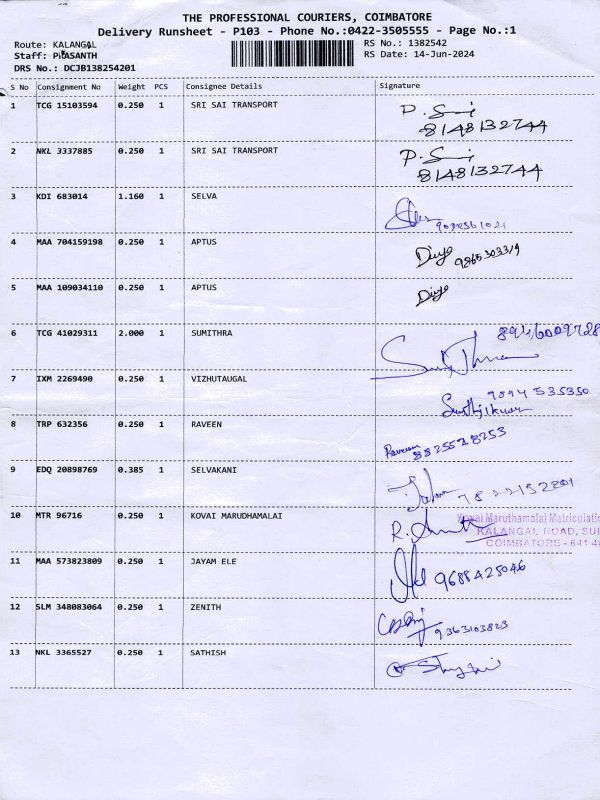 THE PROFESSIONAL COURIERS, COIMBATORE
Delivery Runsheet - P103 - Phone No.:0422-3505555 - Page No.:1
Route: KALANGAL
RS No.: 1382542
Staff: PRASANTH
RS Date: 14-Jun-2024
DRS No.: DCJB138254201
S No Consignment No Weight PCS Consignee Details Signature
1 TCG 15103594 0.250 1 SRI SAI TRANSPORT
8148132744
2 NKL 3337885 0.250 1 SRI SAI TRANSPORT
8148132744
3 KDI 683014 1.160 1 SELVA
4 MAA 704159198 0.250 1 APTUS Divya
9865303319
5 MAA 109034110 0.250 1 APTUS Divya
6 TCG 41029311 2.000 1 SUMITHRA
7 IXM 2269490 0.250 1 VIZHUTAUGAL
9894535350
8 TRP 632356 0.250 1 RAVEEN Raveen
9 EDQ 20898769 0.385 1 SELVAKANI
10 MTR 96716 0.250 1 KOVAI MARUDHAMALAI
Kovai Maruthamalai Matriculatio
KALANGAL ROAD, SUL
COIMBATORE - 641 4
11 MAA 573823809 0.250 1 JAYAM ELE 9688425046
12 SLM 348083064 0.250 1 ZENITH 9363103823
13 NKL 3365527 0.250 1 SATHISH